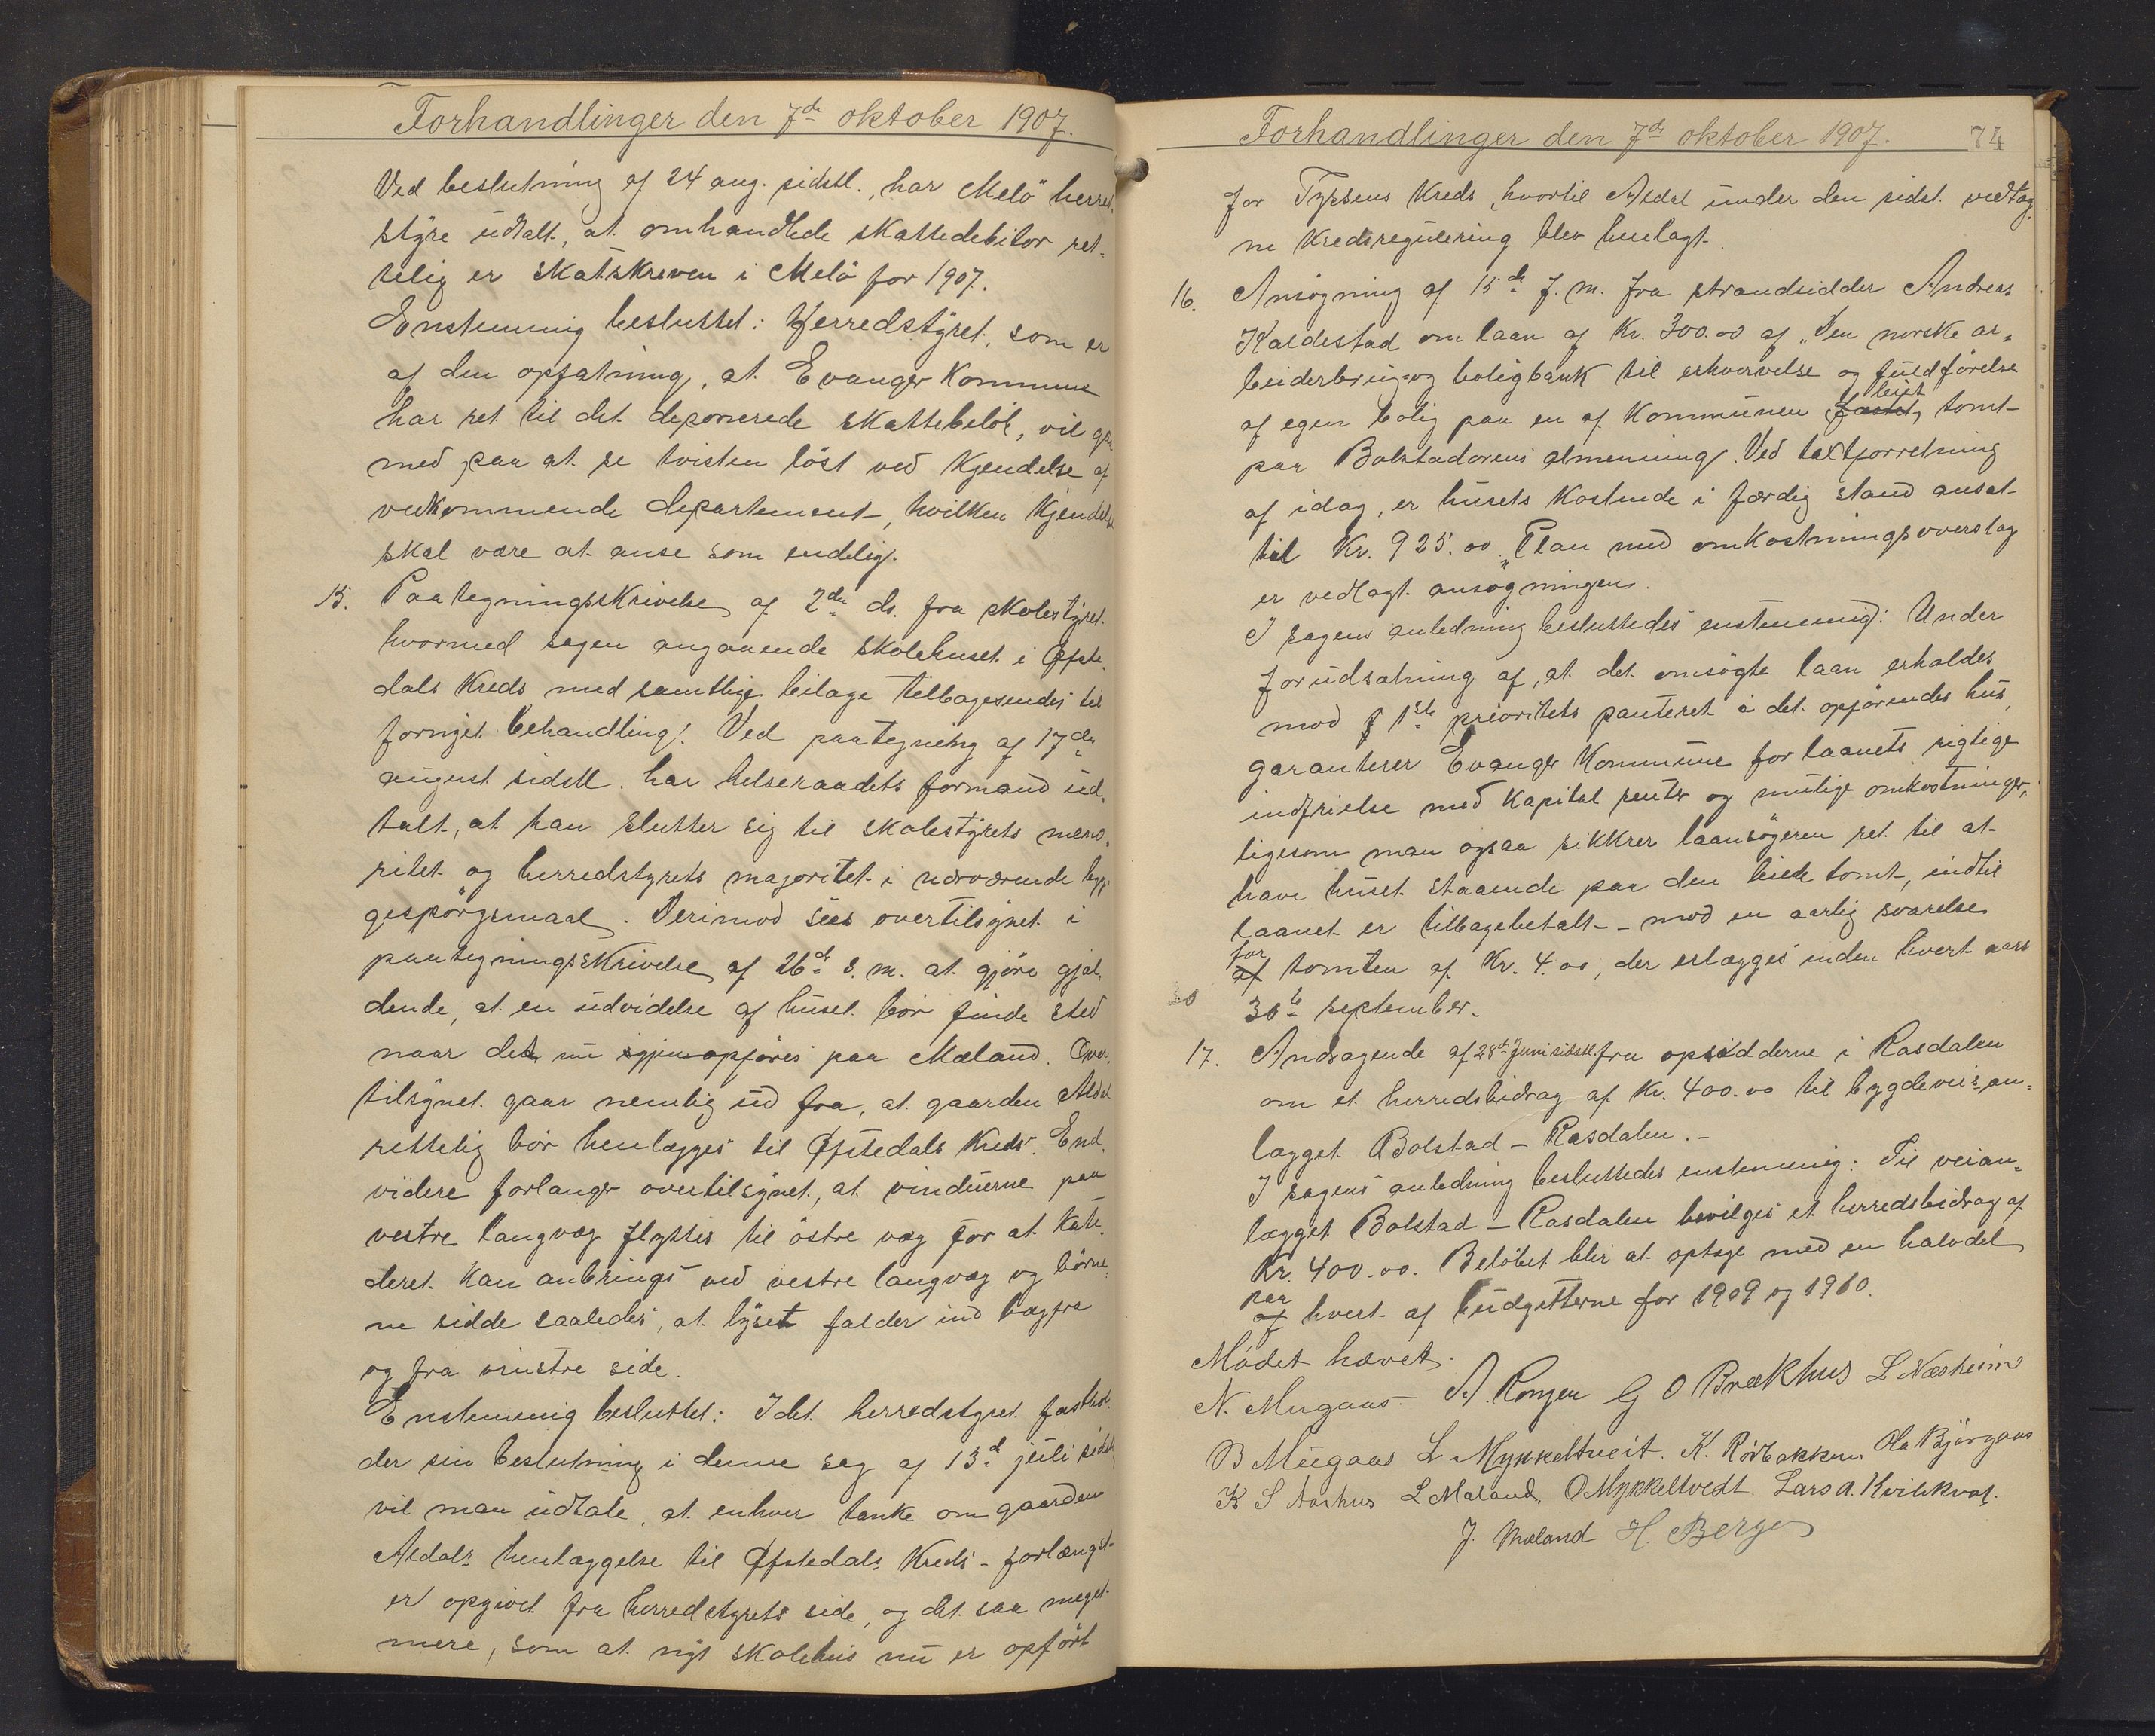 Forhandlinger den 7de oktober 1907.
Ved beslutning af 24 aug. sidstl., har Melö herred-
styre udtalt, at omhandlede skattedebitor ret-
telig er skatskreven i Melö for 1907.
Enstemmig besluttet: Herredstyret, som er
af den opfatning, at Evanger kommune
har ret til det deponerede skattebelöb, vil gaa
med paa at se tvisten löst ved kjendelse af
vedkommende departement, hvilken kjendelse
skal være at anse som endelig.
15. Paategningsskrivelse af 2den ds. fra skolestyret
hvormed sagen angaaende skolehuset i Øfste-
dals kreds med samtlige bilage tilbagesendes til
fornyet behandling. Ved paategning af 17de
august sidstl. har helseraadets formand ud-
talt, at han slutter sig til skolestyrets mino-
ritet og herredstyrets majoritet i nærværende byg-
gespörgsmaal. Derimod sees overtilsynet i
paategningsskrivelse af 26de s. m. at gjöre gjæl-
dende, at en udvidelse af huset bör finde sted
naar det nu igjenopföres paa Mæland. Over-
tilsynet gaar nemlig ud fra, at gaarden Aldal
rettelig bör henlægges til Øfstedals kreds. End-
videre forlanger overtilsynet, at vinduerne paa
vestre langvæg flyttes til östre væg for at kate-
deret kan anbringes ved vestre langvæg og börne-
ne sidde saaledes, at lyset falder ind bagfra
og fra vinstre side.
Enstemmig besluttet: Idet herredstyret fasthol-
der sin beslutning i denne sag af 13de juli sidstl.
vil man udtale, at enhver tanke om gaarden
Aldals henlæggelse til Øfstedals kreds - forlængst
er opgivet fra herredstyrets side, og det saa meget
mere, som at nyt skolehus nu er opfört
Forhandlinger den 7de oktober 1907. 74
for Tyssens kreds, hvortil Aldal under den sidst vedtag-
ne kredsregulering blev henlagt.
16. Ansögning af 15de f. m. fra strandsidder Andreas
Kaldestad om laan af Kr. 300.00 af „Den norske ar-
beiderbrug- og boligbank til erhvervelse og fuldförelse
af egen bolig paa en af kommunen fæstet leiet tomt
paa Bolstadörens almenning. Ved taxtforretning
af idag, er husets kostende i færdig stand ansat
til Kr. 925.00. Plan med omkostningsoverslag
er vedlagt ansögningen.
I sagens anledning besluttedes enstemmig: Under
forudsætning af, at det omsögte laan erholdes
mod 1ste prioritets panteret i det opförendes hus,
garanterer Evanger kommune for laanets rigtige
indfrielse med kapital renter og mulige omkostninger,
ligesom man ogsaa sikkrer laansögeren ret til at
have huset staaende paa den leiede tomt, indtil
laanet er tilbagebetalt - mod en aarlig svarelse
af for tomten af Kr. 4.00, der erlægges inden hvert aars
30te september.
17. Andragende af 28de Juni sidstl. fra opsidderne i Rasdalen
om et herredsbidrag af Kr. 400.00 til bygdeveisan-
lægget Bolstad - Rasdalen. -
I sagens anledning besluttedes enstemmig: Til veian-
lægget Bolstad - Rasdalen bevilges et herredsbidrag af
Kr. 400.00. Belöbet blir at optage med en halvdel
af paa hvert af budgetterne for 1909 og 1910.
Mödet hævet.
N. Mugaas. A. Ronger G O Brækhus L Næsheim
B Mugaas L Mykkeltveit. K. Rödbakken Ola Björgaas
K S Aarhus L Mæland. O Mykkeltvedt Lars A. Kvilekval.
J. Mæland H. Berge